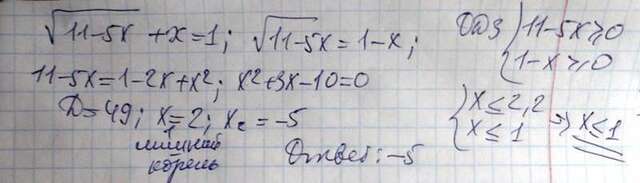 √11-5x + x = 1; √11-5x = 1-x;
11-5x = 1-2x+x²; x²+3x-10=0
D=49; x₁=2; x₂=-5
лишний
корень
Ответ: -5
ОДЗ } 11-5x ≥ 0
{ 1-x ≥ 0
} x ≤ 2,2
{ x ≤ 1 ⇒ x ≤ 1